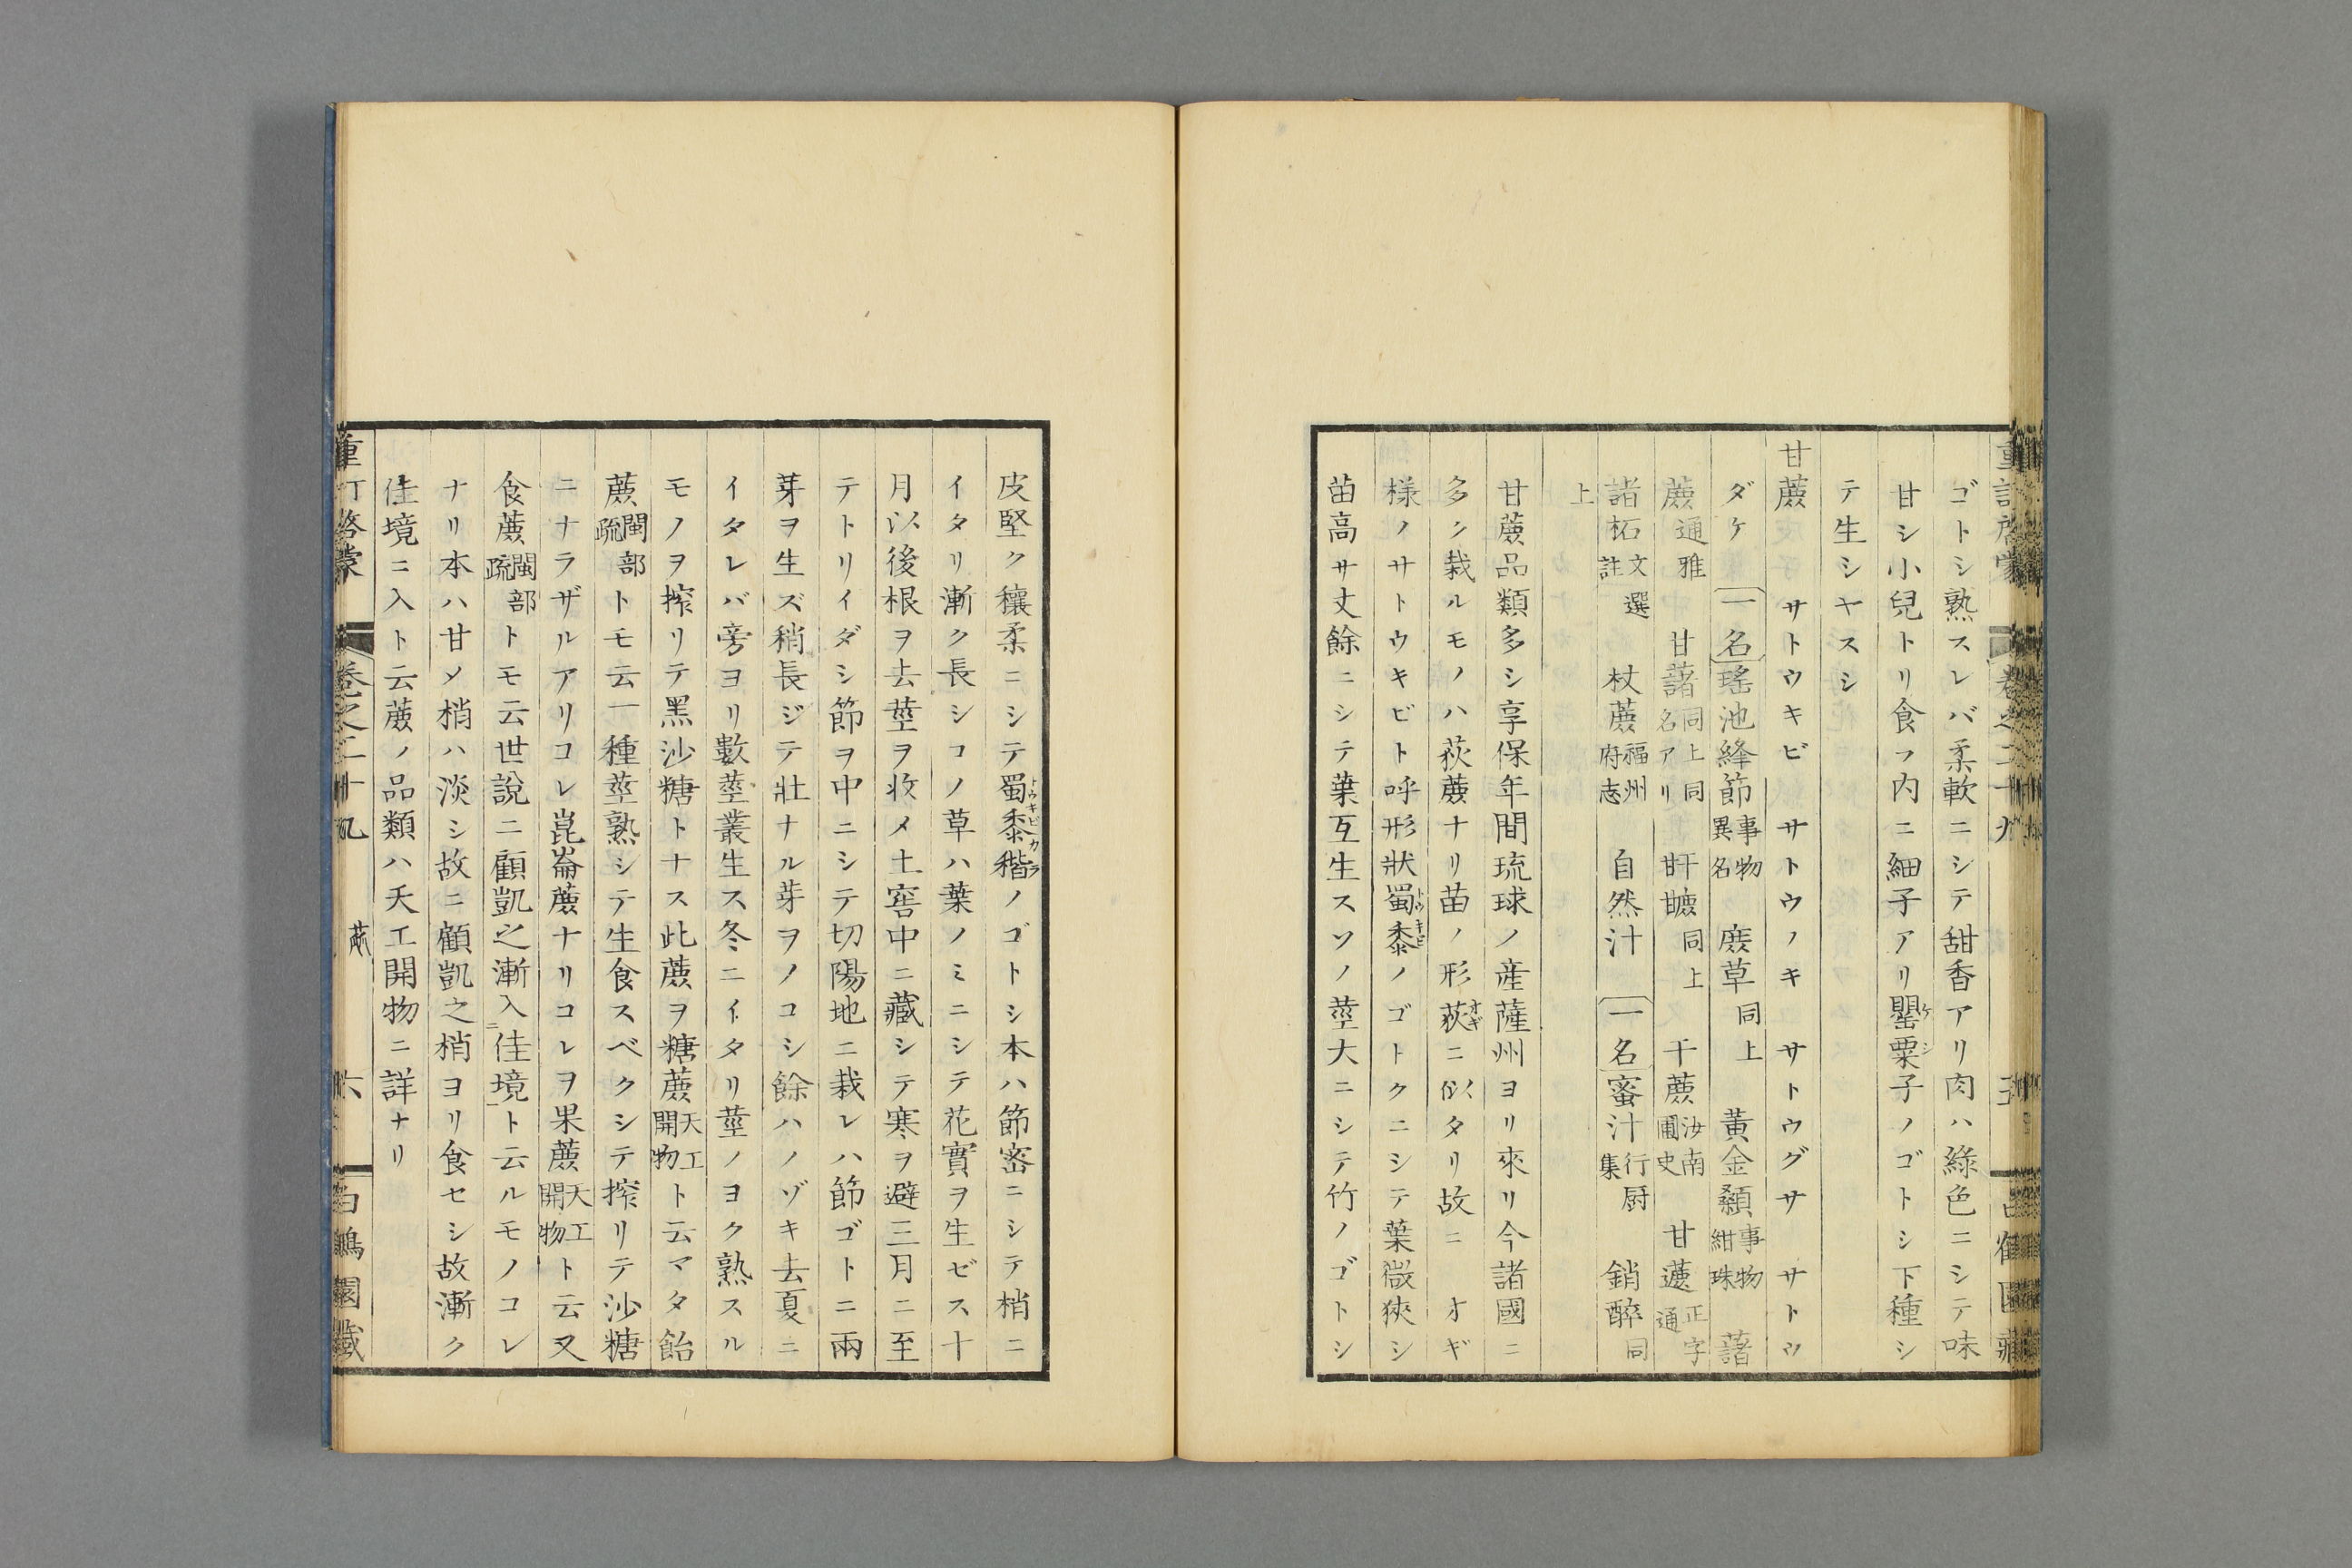 ゴトシ熟スレバ柔軟ニシテ甜香アリ肉ハ綠色ニシテ味
甘シ小兒トリ食フ内ニ細子アリ罌粟子ノゴトシ下種シ
テ生シヤスシ
甘蔗 サトウキビ サトウノキ サトウグサ サトウ
ダケ 一名瑤池絳節事物異名 蔗草同上 黄金顙事物紺珠 藷
蔗通雅 甘藷同上同名アリ 竿𧀹同上 干蔗汝南圃史 甘𧀹正字通
諸柘文選註 杖蔗福州府志 自然汁 一名蜜汁行厨集 銷醉同
上
甘蔗品類多シ享保年間琉球ノ産薩州ヨリ來リ今諸國ニ
多ク栽ルモノハ荻蔗ナリ苗ノ形荻ニ似タリ故ニ オギ
様ノサトウキビト呼形狀蜀黍ノゴトクニシテ葉微狹シ
苗高サ丈餘ニシテ葉互生スソノ莖大ニシテ竹ノゴトシ
皮堅ク穰柔ニシテ蜀黍稭ノゴトシ本ハ節密ニシテ梢ニ
イタリ漸ク長シコノ草ハ葉ノミニシテ花實ヲ生ゼス十
月以後根ヲ去莖ヲ收メ土窖中ニ藏シテ寒ヲ避三月ニ至
テトリイダシ節ヲ中ニシテ切陽地ニ栽レハ節ゴトニ兩
芽ヲ生ズ稍長ジテ壯ナル芽ヲノコシ餘ハノゾキ去夏ニ
イタレバ旁ヨリ數莖叢生ス冬ニイタリ莖ノヨク熟スル
モノヲ搾リテ黑沙糖トナス此蔗ヲ糖蔗天工開物ト云マタ飴
蔗閩部疏トモ云一種莖熟シテ生食スベクシテ搾リテ沙糖
ニナラザルアリコレ崑崙蔗ナリコレヲ果蔗天工開物ト云又
食蔗閩部疏トモ云世説ニ顧凱之漸入佳境ト云ルモノコレ
ナリ本ハ甘メ梢ハ淡シ故ニ顧凱之梢ヨリ食セシ故漸ク
佳境ニ入ト云蔗ノ品類ハ天工開物ニ詳ナリ
重訂啓蒙 卷之二十九 蓏 六 白鶴園藏